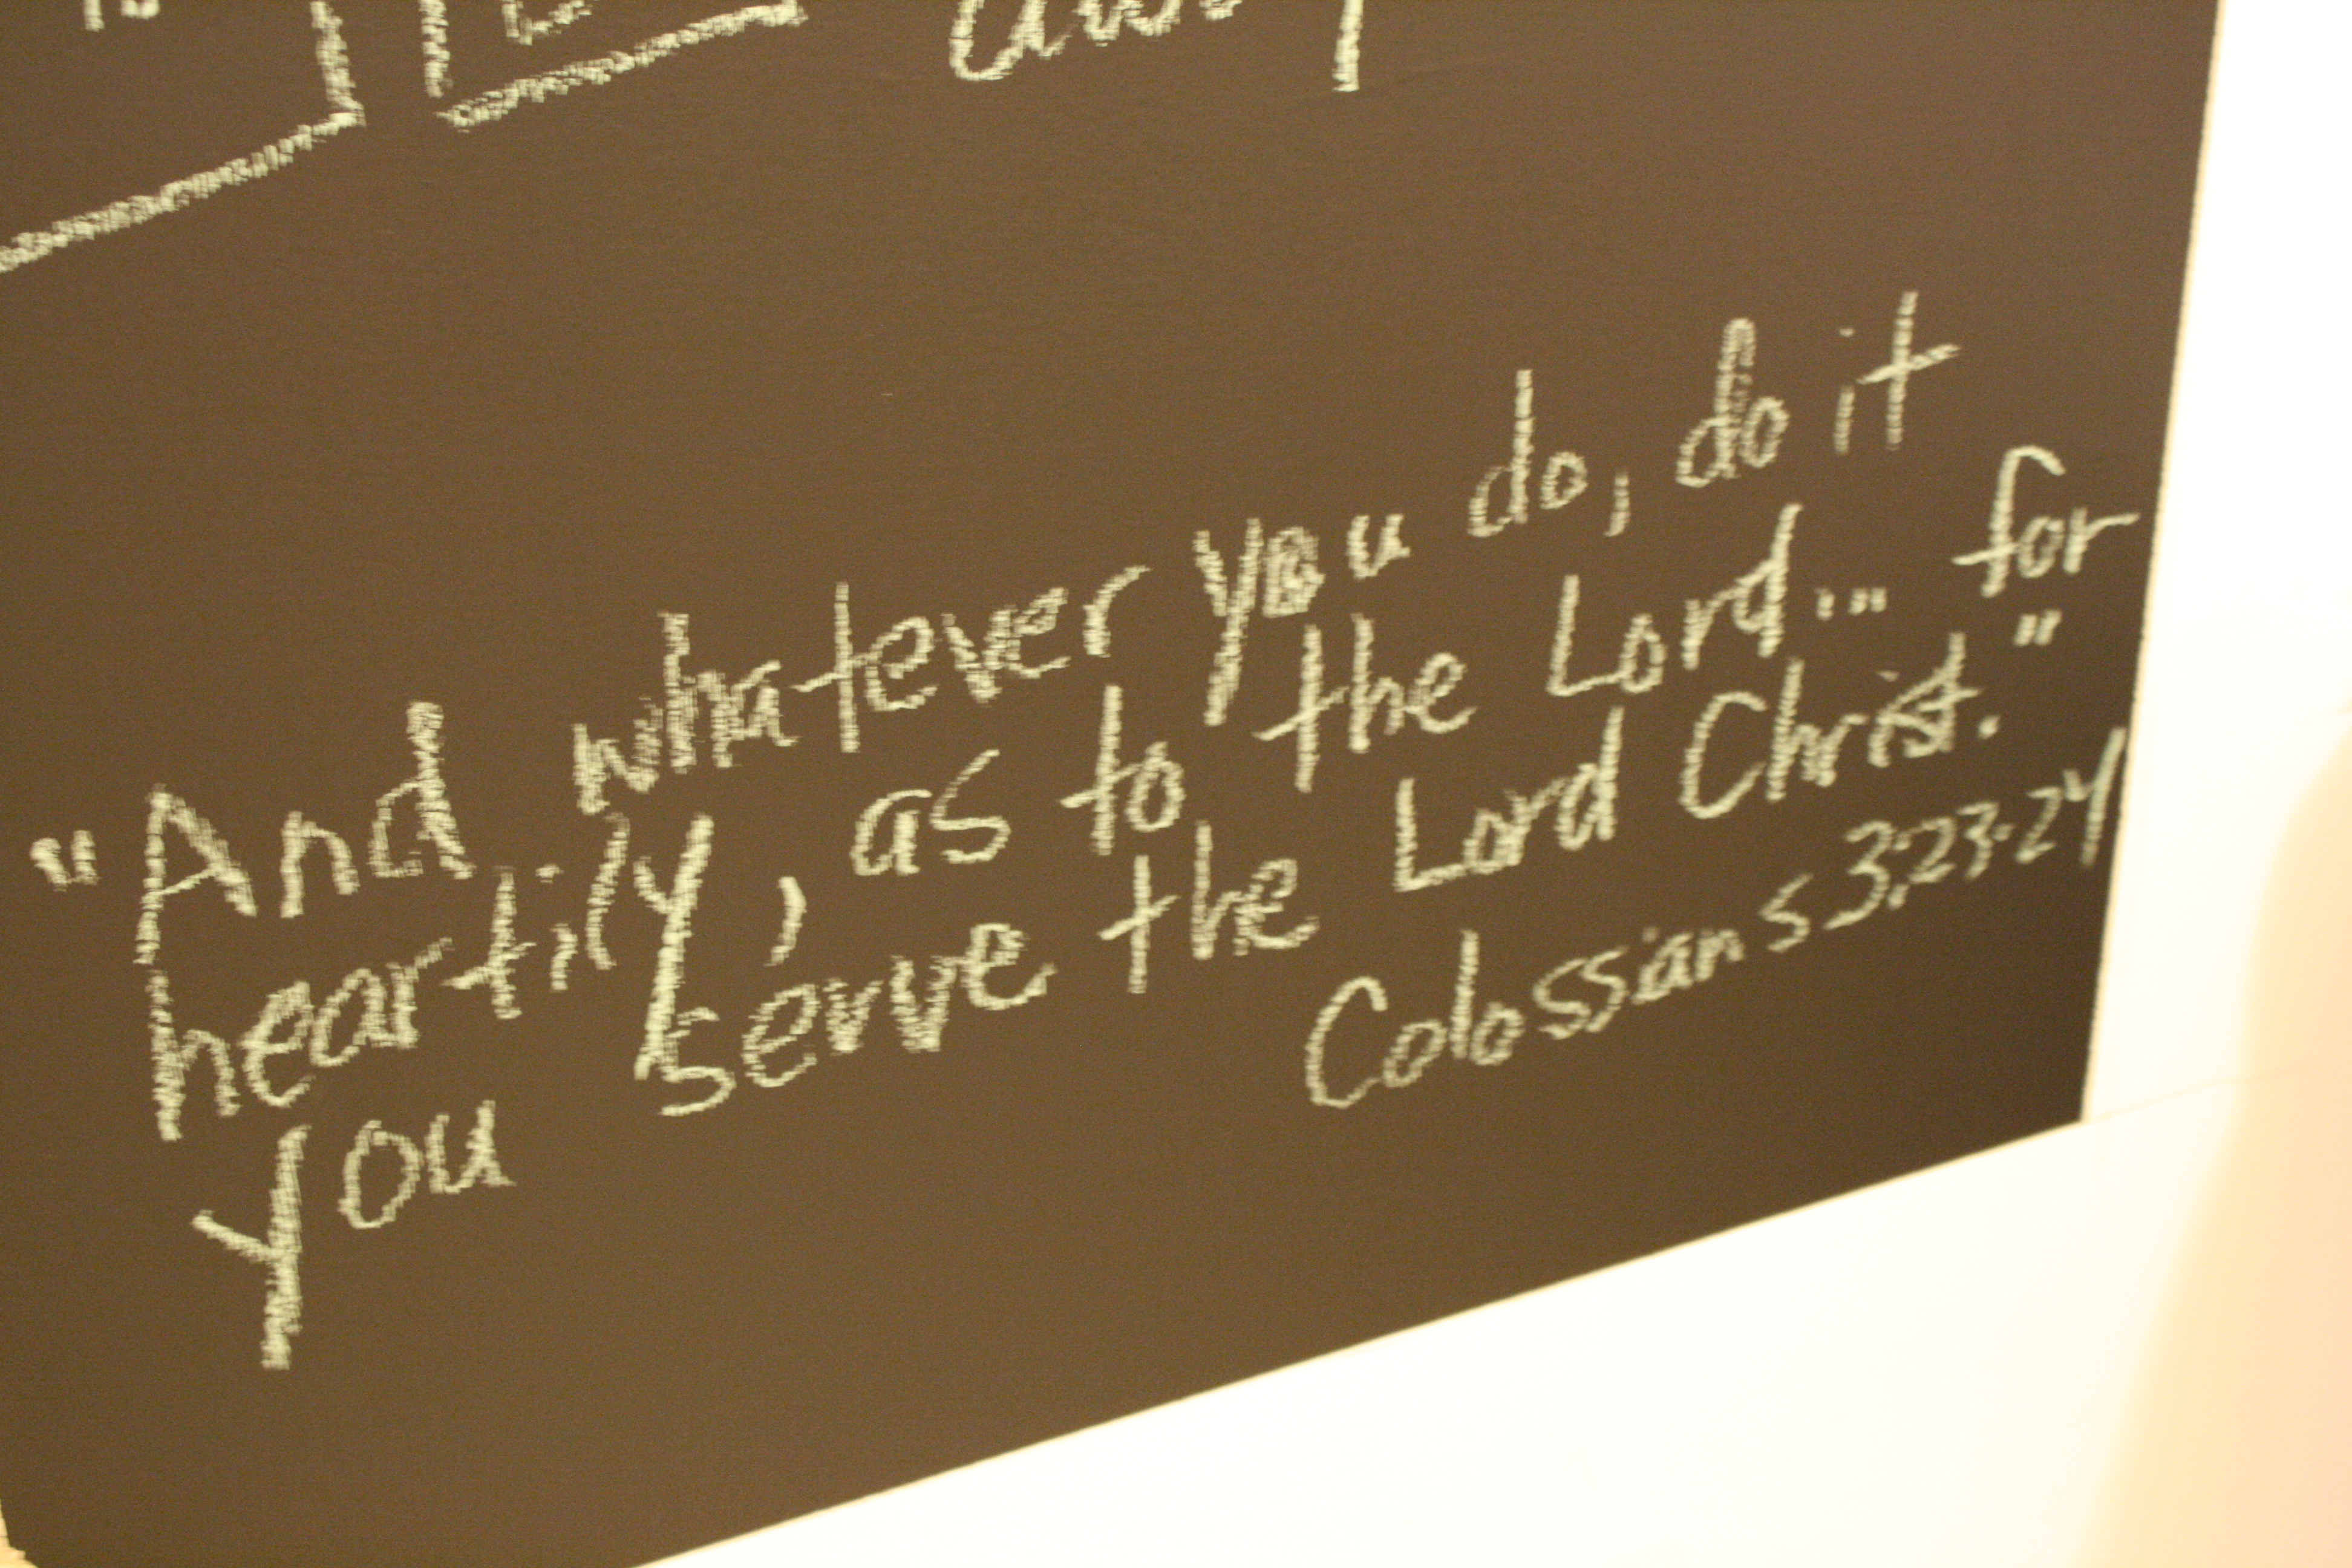 "And whatever you do, do it
heartily, as to the Lord... for
you serve the Lord Christ."
Colossians 3:23-24